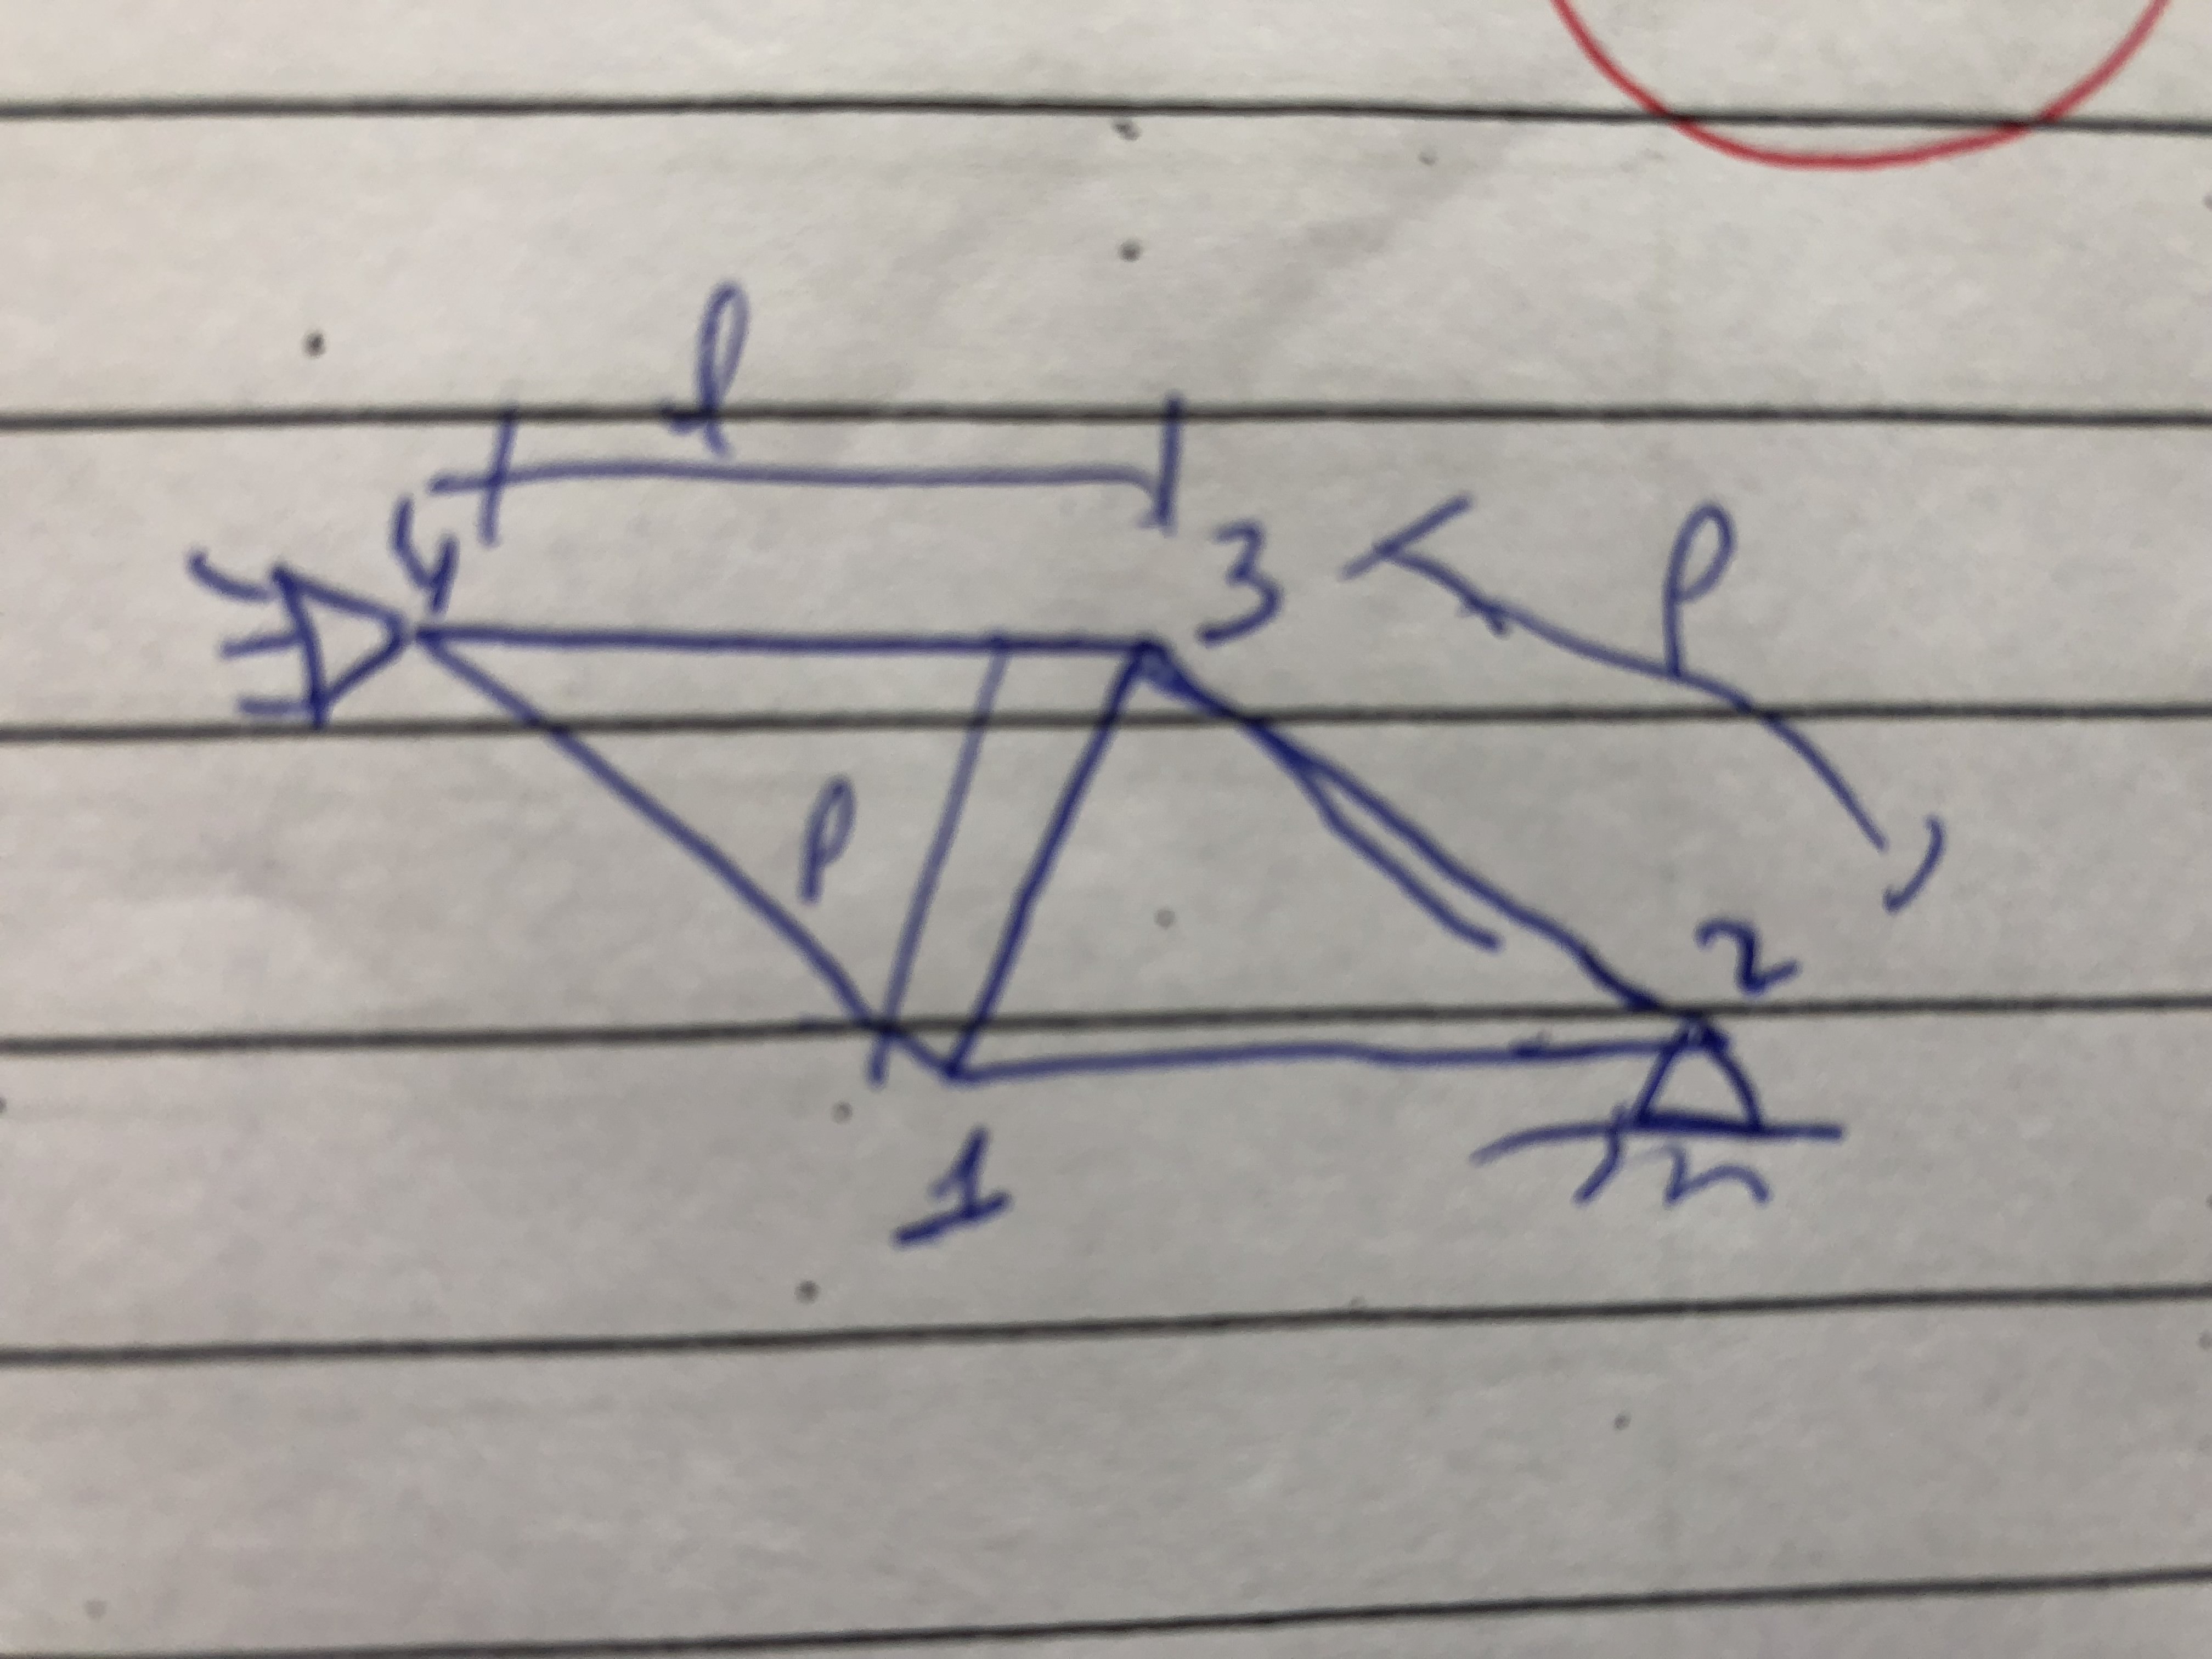 l
4
3
l
l
2
1